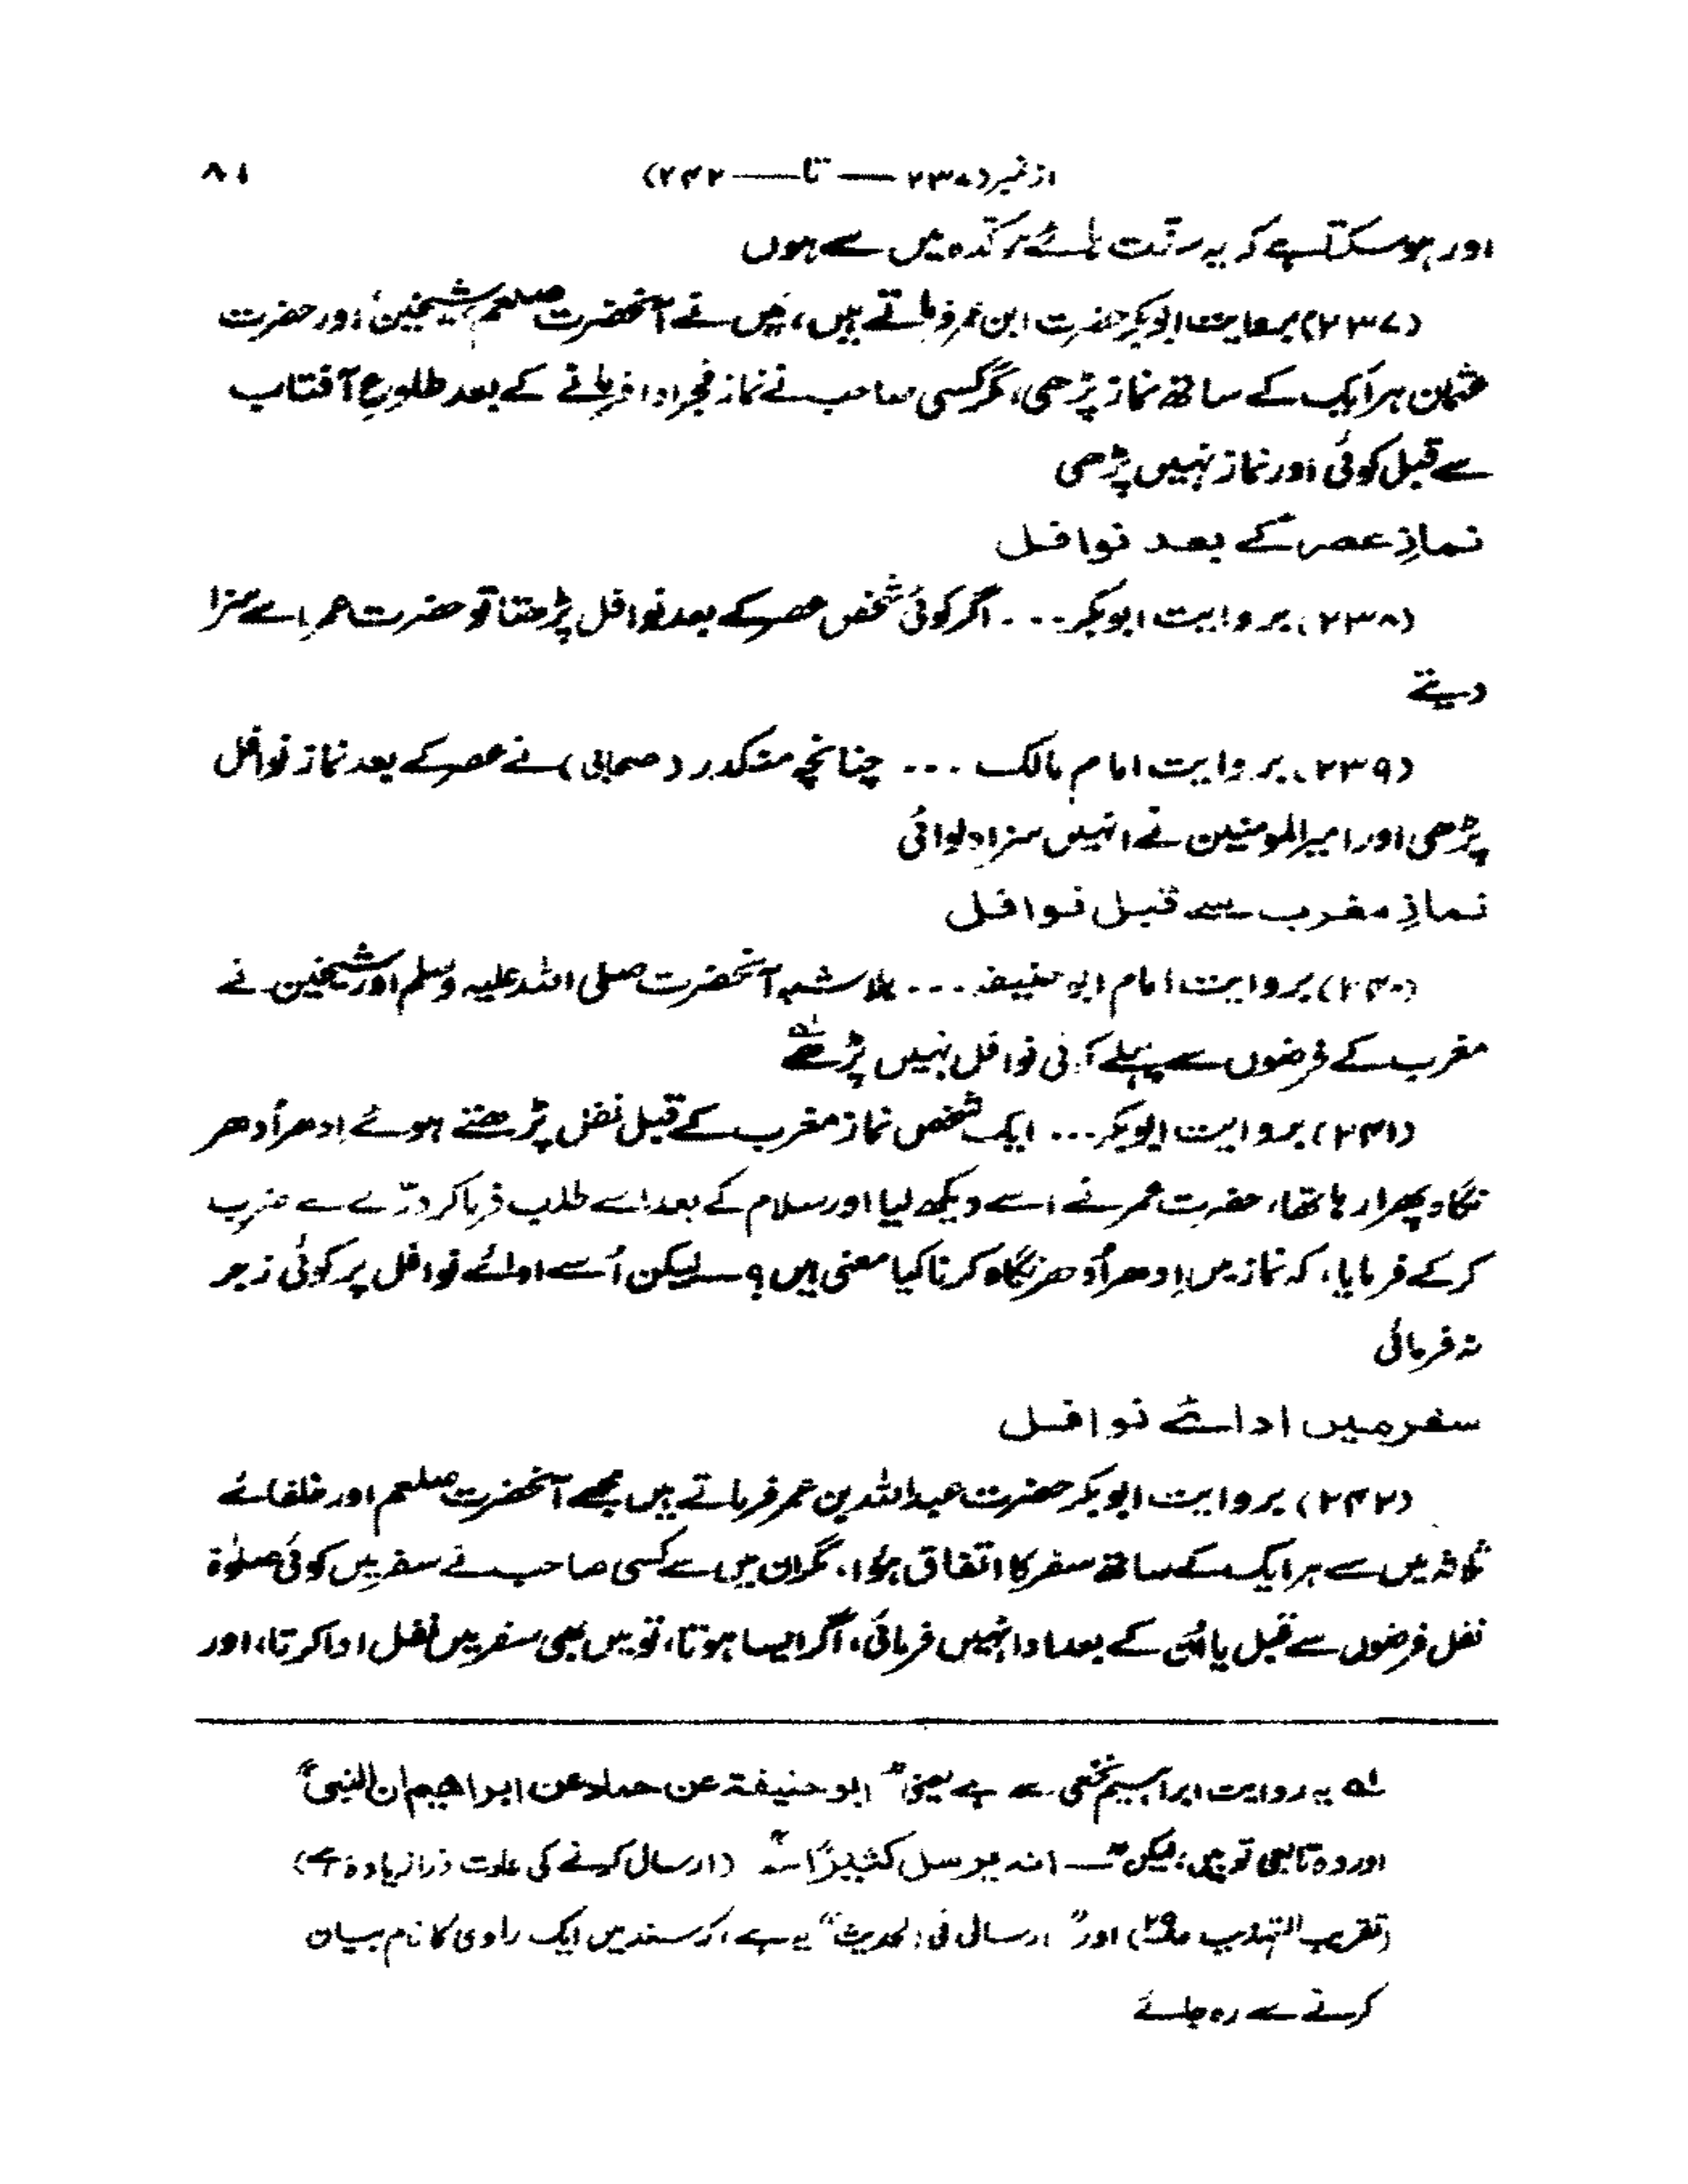 از نمبر (۲۳۷ — تا — ۲۴۲) ۸۱
اور ہو سکتا ہے کہ یہ سنت ہائے مؤکدہ میں سے ہوں
(۲۳۷) بروایت ابوبکر حضرت ابن عمر فرماتے ہیں، میں نے آنحضرت صلعم شیخین اور حضرت
عثمان ہر ایک کے ساتھ نماز پڑھی، مگر کسی صاحب نے نماز فجر ادا فرمانے کے بعد طلوعِ آفتاب
سے قبل کوئی اور نماز نہیں پڑھی
نمازِ عصر کے بعد نوافل
(۲۳۸) بروایت ابوبکر ... اگر کوئی شخص عصر کے بعد نوافل پڑھتا تو حضرت عمر اسے سزا
دیتے
(۲۳۹) بروایت امام مالک ... چنانچہ منکدر (صحابی) نے عصر کے بعد نماز نوافل
پڑھی اور امیر المومنین نے انہیں سزا دلوائی
نمازِ مغرب سے قبل نوافل
(۲۴۰) بروایت امام ابو حنیفہ ... بلا شبہ آنحضرت صلی اللہ علیہ وسلم اور شیخین نے
مغرب کے فرضوں سے پہلے کوئی نوافل نہیں پڑھے لہ
(۲۴۱) بروایت ابوبکر ... ایک شخص نماز مغرب کے قبل نفل پڑھتے ہوئے اِدھر اُدھر
نگاہ پھرا رہا تھا، حضرت عمر نے اسے دیکھ لیا اور سلام کے بعد اسے طلب فرما کر درّے سے ضرب
کر کے فرمایا، کہ نماز میں اِدھر اُدھر نگاہ کرنا کیا معنی ہیں؟ — لیکن اُسے ادائے نوافل پر کوئی زجر
نہ فرمائی
سفر میں ادائے نوافل
(۲۴۲) بروایت ابوبکر حضرت عبداللہ بن عمر فرماتے ہیں مجھے آنحضرت صلعم اور خلفائے
ثلاثہ میں سے ہر ایک کے ساتھ سفر کا اتفاق ہوا، مگر ان میں سے کسی صاحب نے سفر میں کوئی صلوٰۃ
نفل فرضوں سے قبل یا اُن کے بعد ادا نہیں فرمائی، اگر ایسا ہوتا، تو میں بھی سفر میں نفل ادا کرتا، اور
لہ یہ روایت ابراہیم نخعی سے ہے یعنی "ابو حنیفة عن حماد عن ابراھیم ان النبیؐ"
اور وہ تابعی تو ہیں؛ لیکن "— انہ یرسل کثیرًا —" (ارسال کرنے کی علت ذرا زیادہ ہے)
(تقریب التہذیب ص۲۹) اور "ارسال فی الحدیث" یہ ہے، کہ سند میں ایک راوی کا نام بیان
کرنے سے رہ جائے